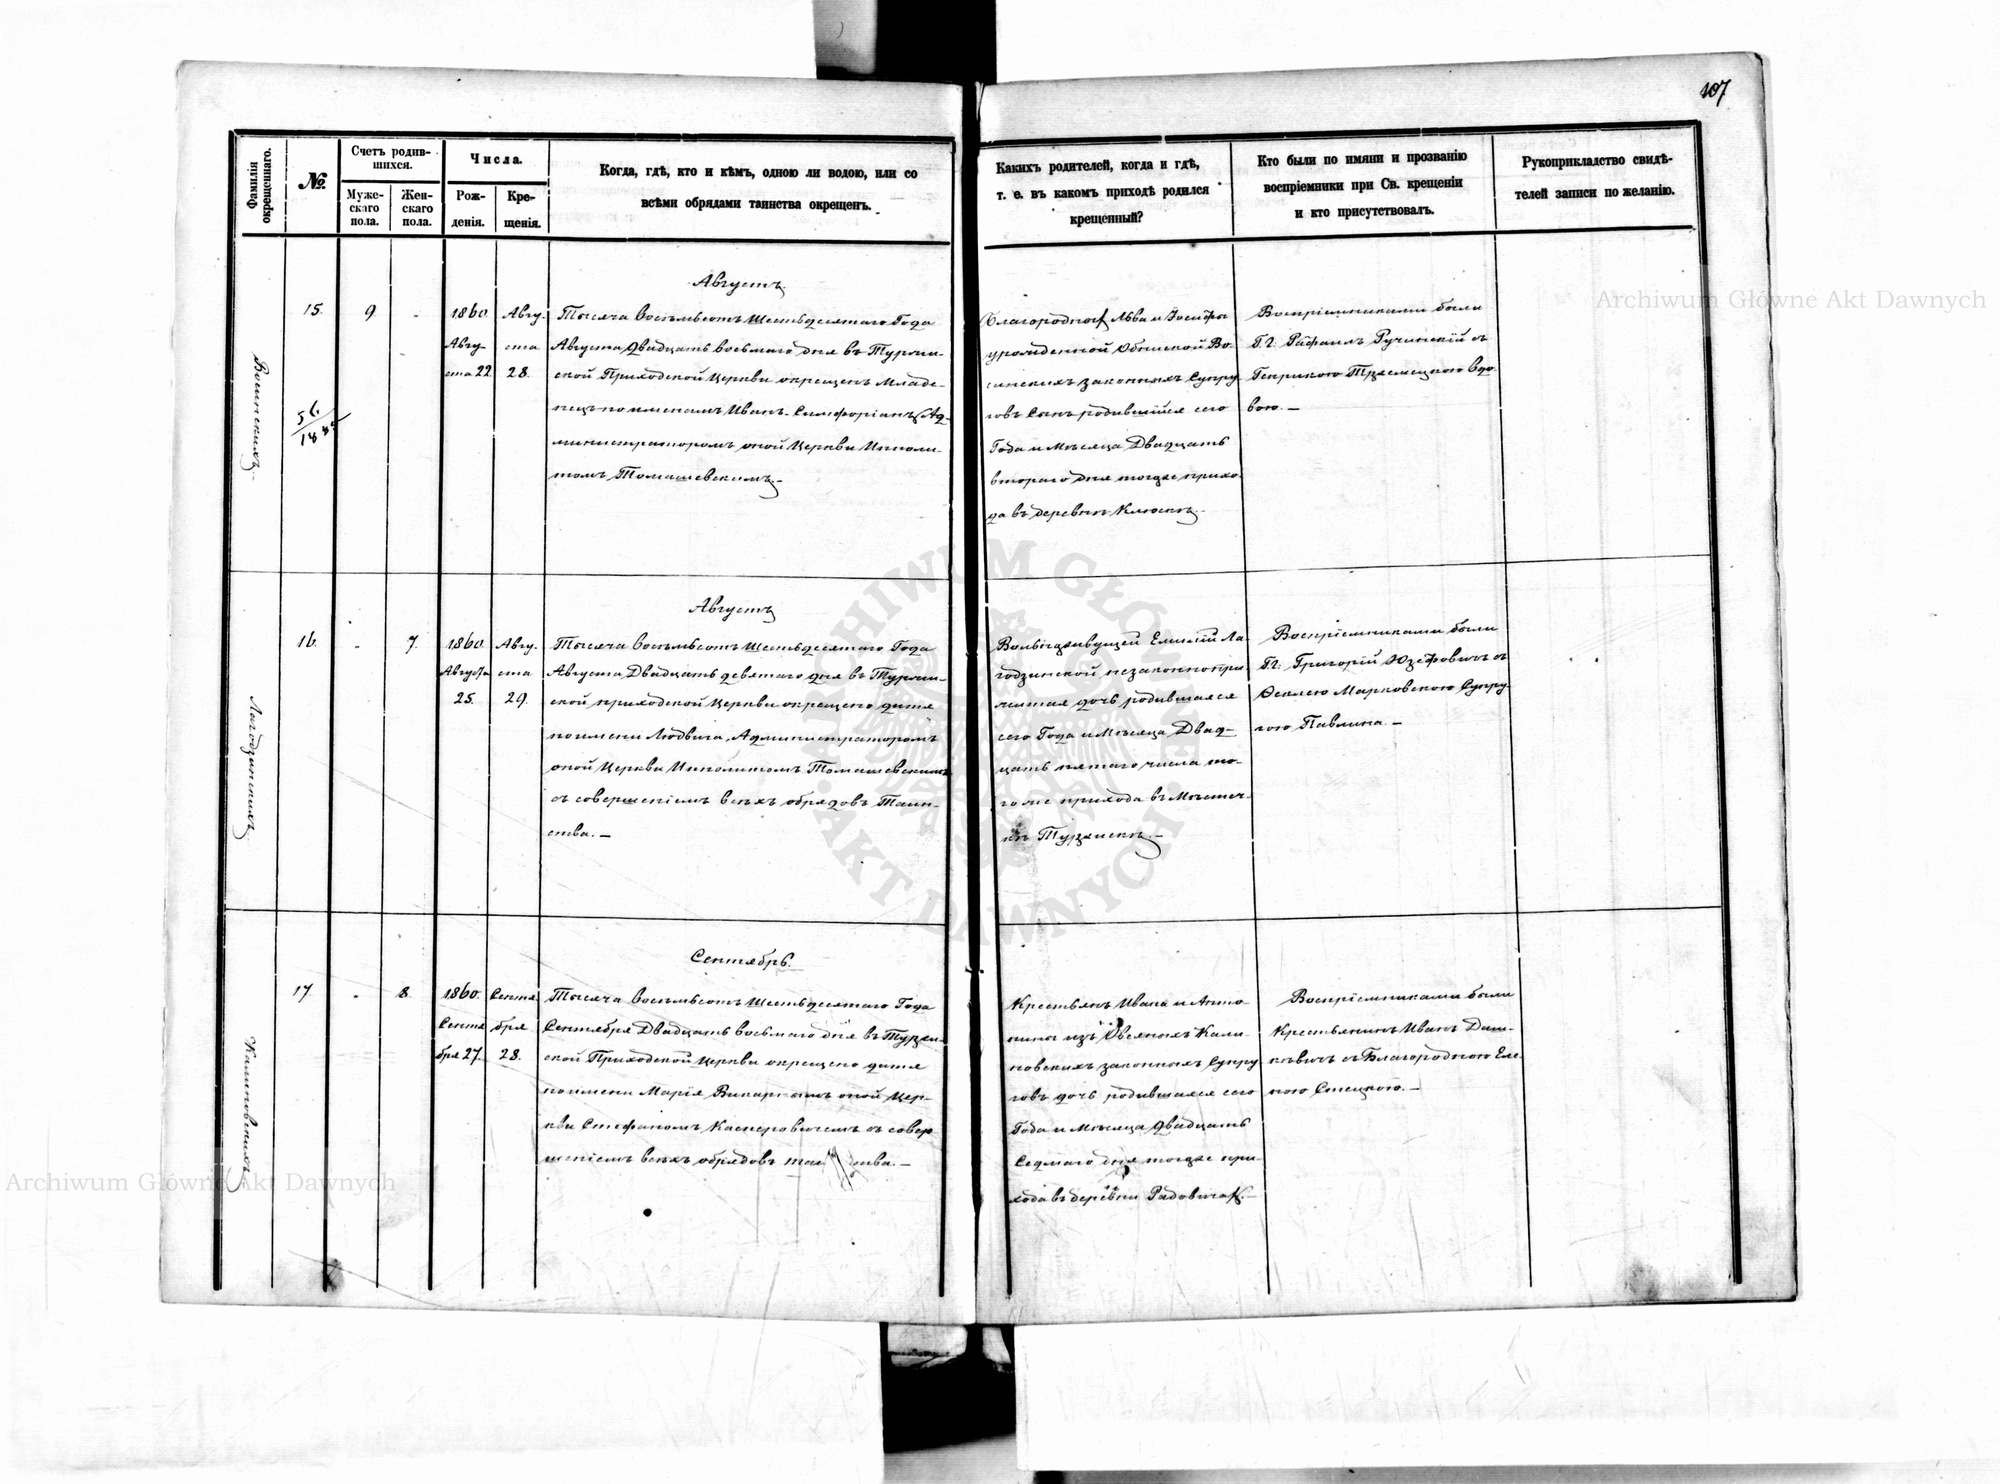 107
Фамилія
окрещеннаго.
№.
Счетъ родив-
шихся.
Муже-
скаго
пола.
Жен-
скаго
пола.
Числа.
Рож-
денія.
Кре-
щенія.
Когда, гдѣ, кто и кѣмъ, одною ли водою, или со
всѣми обрядами таинства окрещенъ.
Какихъ родителей, когда и гдѣ,
т. е. въ какомъ приходѣ родился
крещенный?
Кто были по имяни и прозванію
воспріемники при Св. крещеніи
и кто присутствовалъ.
Рукоприкладство свидѣ-
телей записи по желанію.
15.
9
1860
Авгу-
ста 22.
Авгу-
ста
28.
Августъ.
Тысяча восемьсотъ шестьдесятаго Года
Августа двадцать восьмаго дня въ Турзи-
ской Приходской Церкви окрещенъ младе-
нецъ по именамъ Иванъ-Симфоріанъ Ад-
министраторомъ оной Церкви Ипполи-
томъ Томашевскимъ.-
Благородныхъ Льва и Іосифы
урожденной
законныхъ Супру-
говъ Сынъ родившійся сего
Года и Мѣсяца Двадцать
втораго дня тогоже прихо-
да въ деревни
Воспріемниками были
Г.Г. Рафаилъ Ручинскій съ
Вдо-
вою.-
16.
7.
1860
Августа
25.
Авгу-
ста
29.
Августъ
Тысяча восемьсотъ шестьдесятаго Года
Августа Двадцать девятаго дня въ Турзи-
ской приходской Церкви окрещено дитя
по имени Людвига, Администраторомъ
оной Церкви Ипполитомъ Томашевскимъ
съ совершеніемъ всѣхъ обрядовъ Таин-
ства.-
Емиліи Ла-
годзинской незаконнопри-
житая дочь родившаяся
сего Года и Мѣсяца Двад-
цать пятаго числа то-
гоже прихода въ Мѣстеч-
кѣ Турзискѣ.-
Воспріемниками были
Г.Г. Григорій Юзефовичъ съ
Феклею Марковскою Супру-
гою Павлина.-
Лагодзинскихъ
17.
8
1860.
Сентя
бря 27.
Сентя
бря
28.
Сентябрь.
Тысяча восемьсотъ шестьдесятаго Года
Сентября Двадцать восьмаго дня въ Турзи-
ской Приходской Церкви окрещено дитя
по имени Марія Викарнымъ оной Цер-
кви Стефаномъ Касперовичемъ съ совер
шеніемъ всѣхъ обрядовъ
Крестьянъ Ивана и Анто-
нины изъ Овсяныхъ Кали-
новскихъ законныхъ Супру
говъ дочь родившаяся сего
Года и Мѣсяца Двадцать
Седмаго дня тогоже при-
хода въ деревни Радовичахъ.-
Воспріемниками были
Крестьянинъ Иванъ Даш-
кѣвичъ съ Благородною Еле
ною Стецкою.-
Калиновскихъ
Archiwum Główne Akt Dawnych
Archiwum Główne Akt Dawnych
ARCHIWUM GŁÓWNE
AKT DAWNYCH